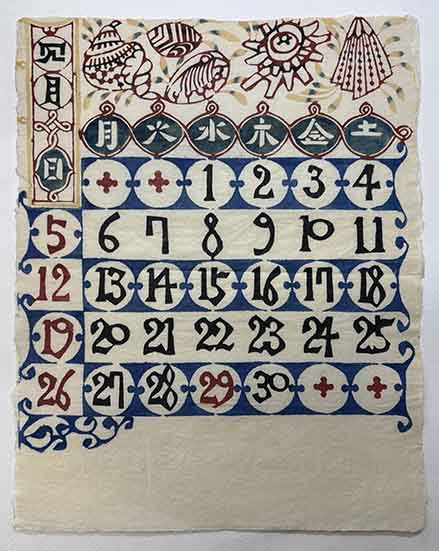 四月
日 月 火 水 木 金 土
1 2 3 4
5 6 7 8 9 10 11
12 13 14 15 16 17 18
19 20 21 22 23 24 25
26 27 28 29 30